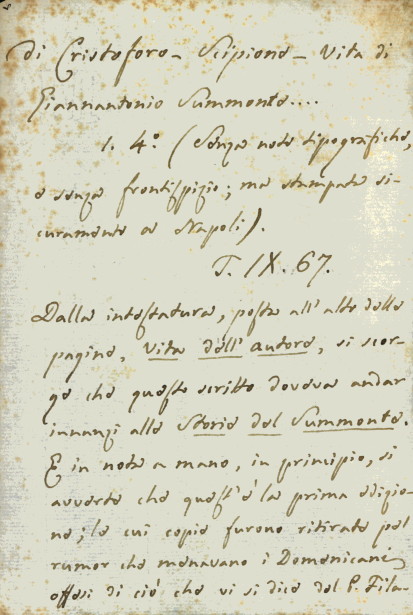 di Cristoforo - Scipione - Vita di
Giannantonio Summonte....
1. 4.º (Senza note tipografiche,
e senza frontispizio; ma stampata si-
curamente a Napoli).
T. IX. 67.
Dalla intestatura, posta all'alto delle
pagine, Vita dell'autore, si scor-
ge che questo scritto doveva andar
innanzi alle Storie del Summonte.
E in nota a mano, in principio, si
avverte che quest'è la prima edizio-
ne; le cui copie furono ritirate pel
rumor che menavano i Domenicani,
offesi di ciò che vi si dice del P. Fila-